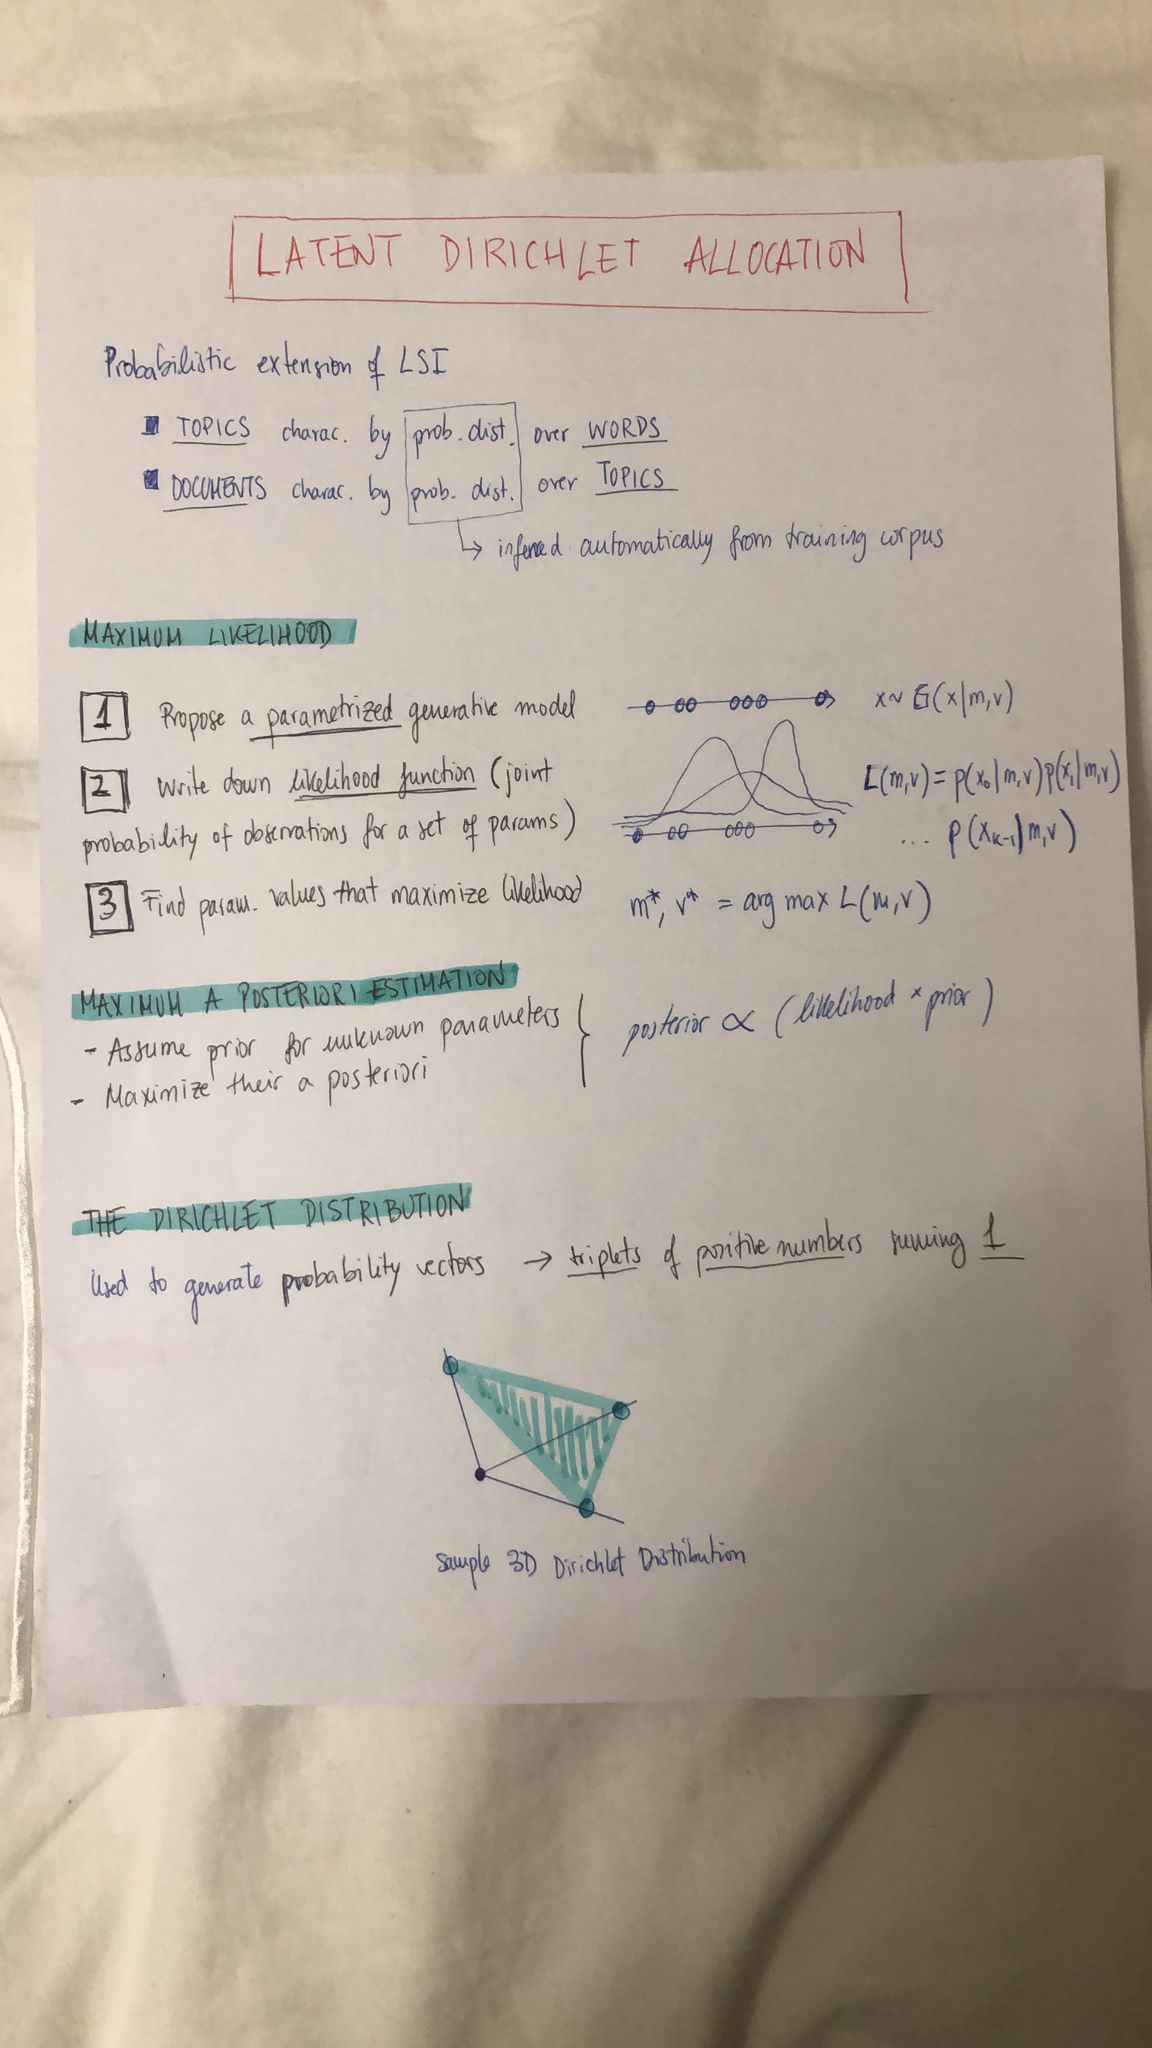 LATENT DIRICHLET ALLOCATION
Probabilistic extension of LSI
TOPICS charac. by prob. dist. over WORDS
DOCUMENTS charac. by prob. dist. over TOPICS
↳ infered automatically from training corpus
MAXIMUM LIKELIHOOD
1 Propose a parametrized generative model
x ~ G(x|m,v)
2 Write down likelihood function (joint
probability of observations for a set of params)
L(m,v) = p(x₀|m,v)p(x₁|m,v)
... p(xₖ₋₁|m,v)
3 Find param. values that maximize likelihood
m*, v* = arg max L(m,v)
MAXIMUM A POSTERIORI ESTIMATION
- Assume prior for unknown parameters
- Maximize their a posteriori
posterior ∝ (likelihood × prior)
THE DIRICHLET DISTRIBUTION
Used to generate probability vectors → triplets of positive numbers summing 1
Sample 3D Dirichlet Distribution